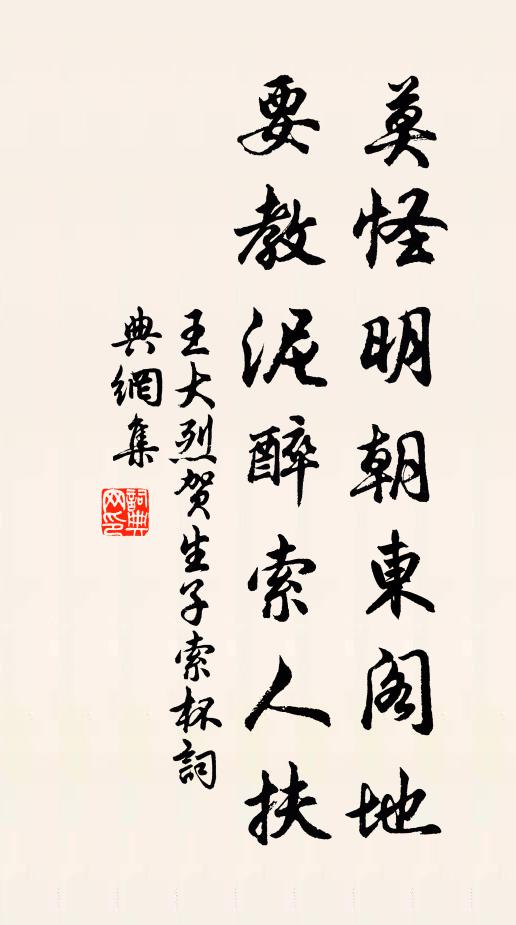 莫怪明朝東閣地
要教泥醉索人扶
王大烈賀生子索杯詞
典網集
詞典
网印